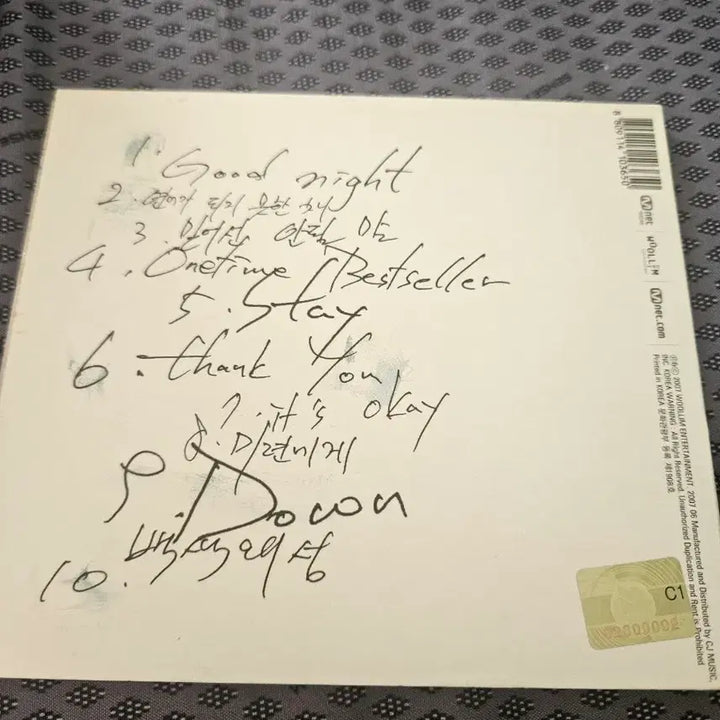 1. Good night
2. 연어가 되지 못한
3. 믿어선 안될 말
4. Onetime Bestseller
5. Stay
6. Thank You
7. it's okay
8. 미련에게
9. Down
10. 백색왜성
8 809114 103650
Mnet
WOOLLIM
Mnet.com
2007 WOOLLIM ENTERTAINMENT. 2007 06 Manufactured and Distributed by CJ MUSIC.
INC. KOREA WARNING : All Right Reserved. Unauthorized Duplication and Rent is Prohibited
Printed in KOREA 문화관광부 등록 제1908호
C1